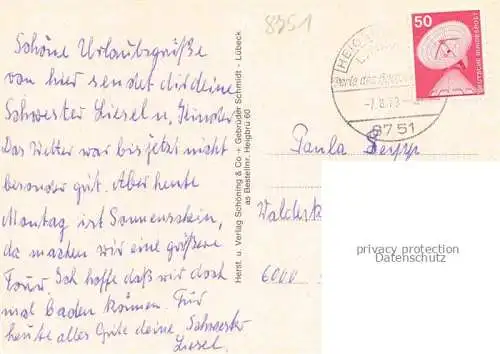 8351
Schöne Urlaubsgrüße
von hier sendet dir deine
Schwester Liesel u. Kinder
Das Wetter war bis jetzt nicht
besonder gut. Aber heute
Montag ist Sonnenschein,
da machen wir eine größere
Tour. Ich hoffe daß wir doch
mal Baden können. Für
heute alles Gute deine Schwester
Liesel.
Herst. u. Verlag Schöning & Co + Gebrüder Schmidt - Lübeck
as Bestellnr. Heigbrü 60
50
DEUTSCHE BUNDESPOST
HEIGENBRÜCKEN
8751
Paula Seyp
6000
privacy protection
Datenschutz